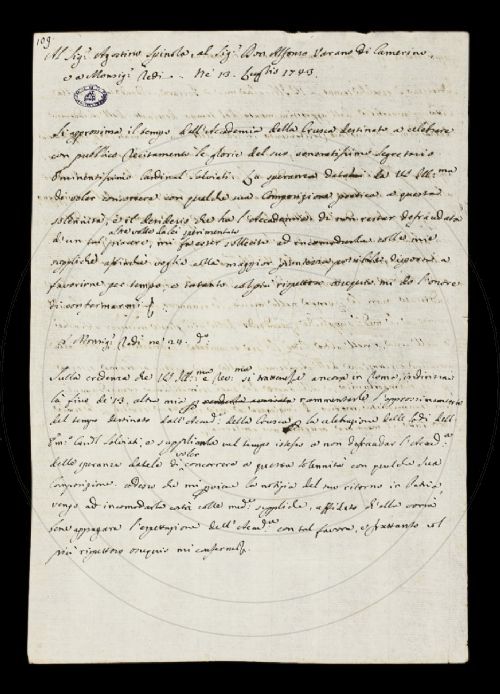 109
Al Sig.r Agostino Spinola, al Sig.r Don Alfonso Varano di Camerino,
e a Monsig.r Redi. Ne' 13. Luglio 1743.
Si approssima il tempo dall'Accademia della Crusca destinato a celebrare
con pubblico Recitamento le glorie del suo veneratissimo Segretario
Eminentissimo Cardinal Salviati. La speranza da V.S. Ill.ma
di voler concorrere con qualche sua Composizione poetica a questa
solennità, e il desiderio che ha l'Accademia di non restar defraudata
altre volte da lei sperimentato
di un tal piacere, mi fa esser sollecito ad incomodarla colle mie
suppliche affinché voglia colla maggior possibile, degnarsi
favorirne per tempo; e intanto col più rispettoso ossequio mi do l'onore
di confermarmi
A Monsig.r Redi ne' 24. d.o
Sulla credenza che V.S. Ill.ma e Rev.ma si trattenesse ancora in Roma, indirizzai
là fino de' 13. altra mia rammentarle l'approssimamento
del tempo destinato dall'Accad.a della Crusca la celebrazione delle lodi dell'
Em.o Card.l Salviati, e supplicarla nel tempo istesso a non defraudar l'Accad.a
della speranza datale di
voler
concorrere a questa solennità con qualche sua
Composizione. adesso che mi giunge la notizia del suo ritorno in Patria,
vengo ad incomodarla costà colle med.e suppliche, affidato
appagare l'espettazione dell'Accad.a con tal favore, e frattanto col
più rispettoso ossequio mi confermo